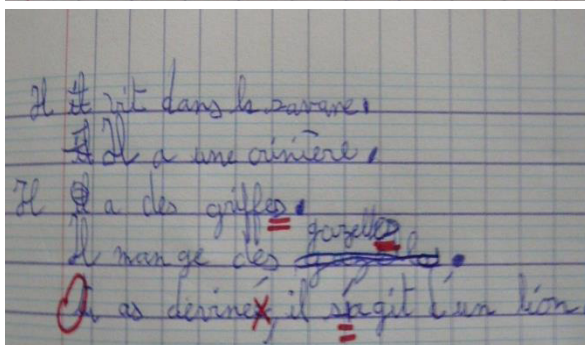 Il vit dans la savane.
Il a une crinière.
Il a des griffes.
Il mange des gazelles.
as deviné, il s'agit d'un lion.